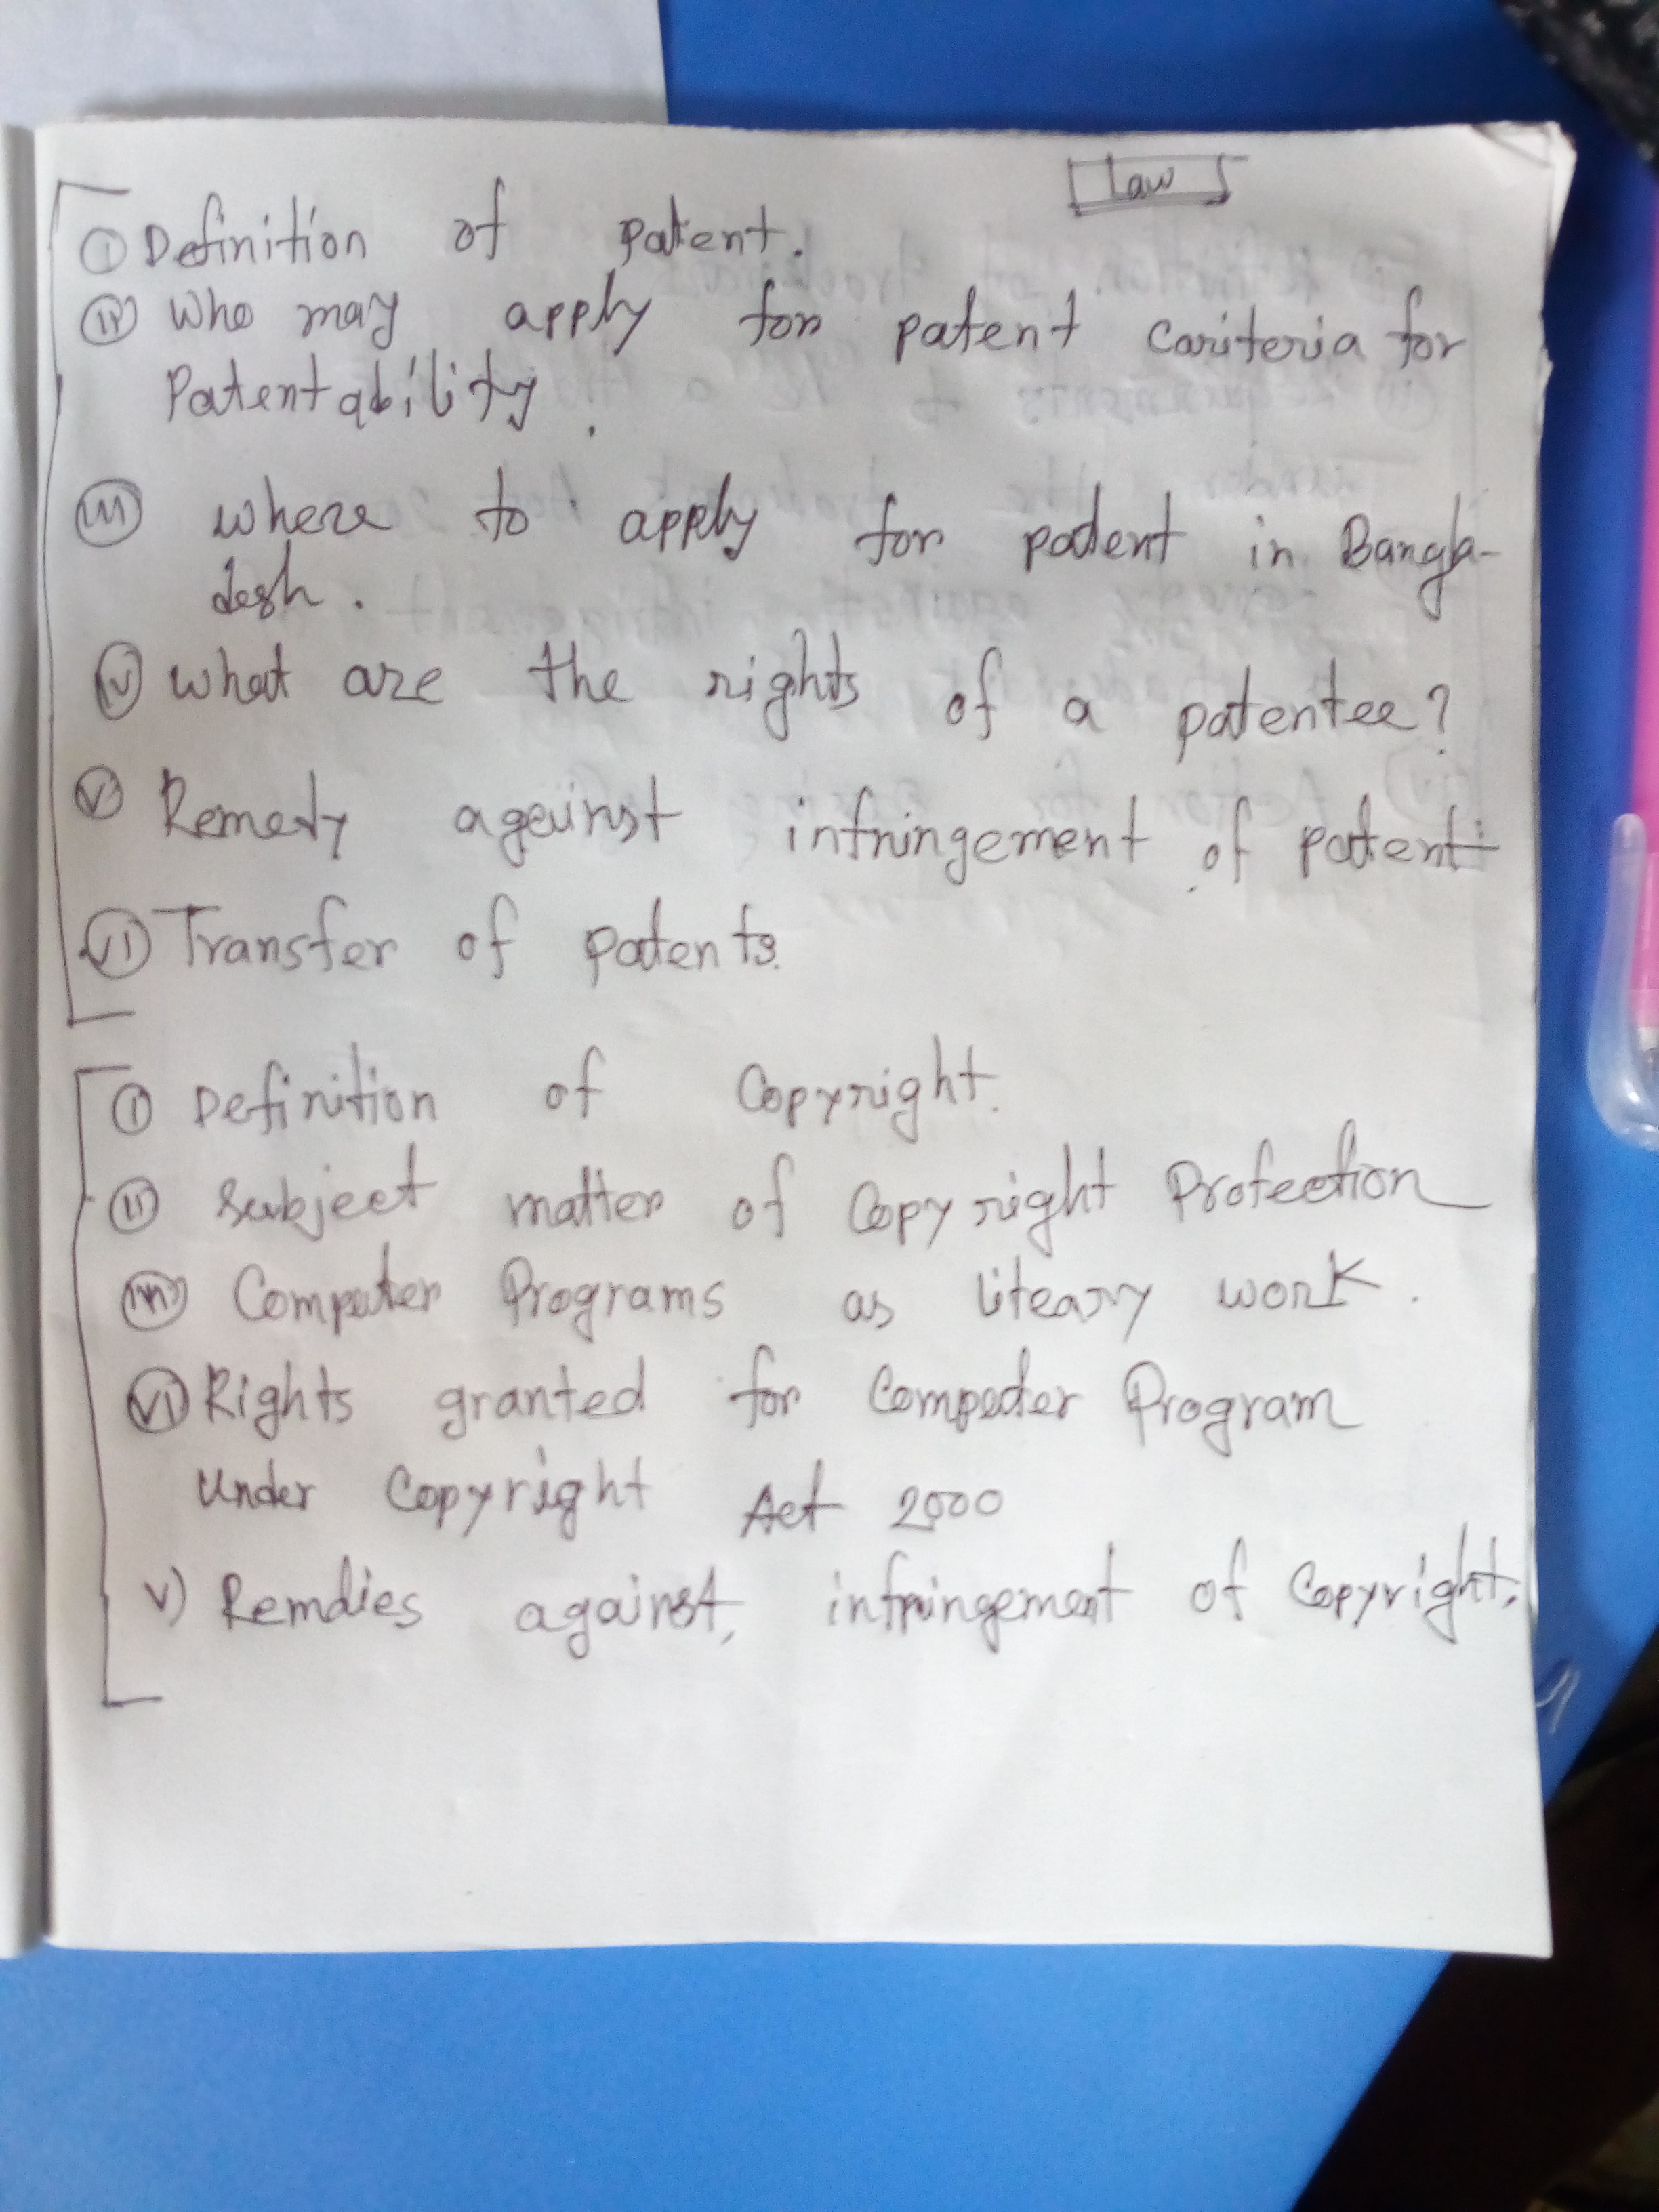 Law
(i) Definition of patent.
(ii) Who may apply for patent Cariteria for
Patentability.
(iii) where to apply for patent in Bangla-
desh.
(iv) what are the rights of a patentee?
(v) Remedy against infringement of patent
(vi) Transfer of patents.
(i) Definition of Copyright.
(ii) Subject matter of Copyright Protection
(iii) Computer Programs as liteary work.
(vi) Rights granted for Computer Program
Under Copyright Act 2000
v) Remdies against, infringement of Copyright.